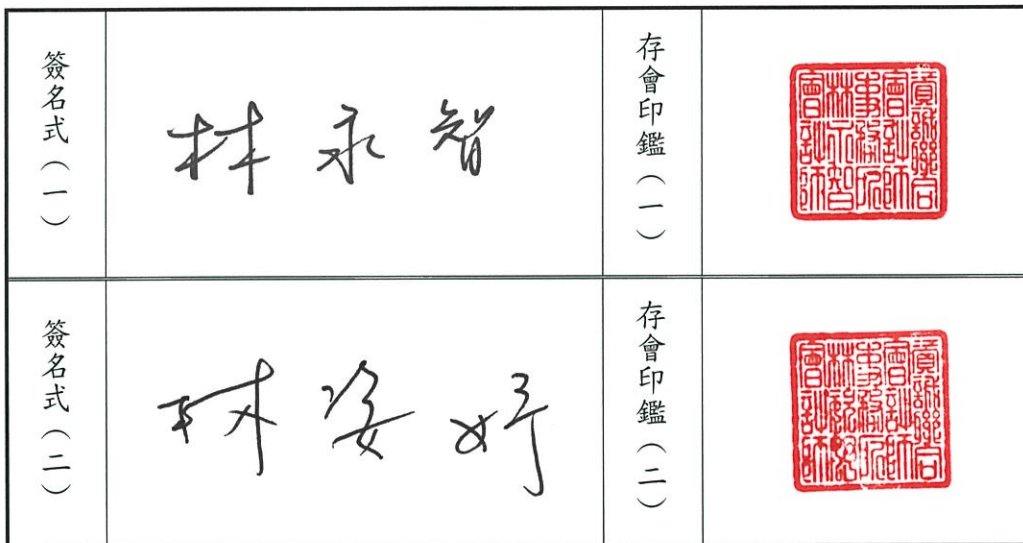 簽名式(一)
林永智
存會印鑑(一)
資誠聯合
會計師
事務所
林永智
會計師
簽名式(二)
林姿妤
存會印鑑(二)
資誠聯合
會計師
事務所
林
會計師